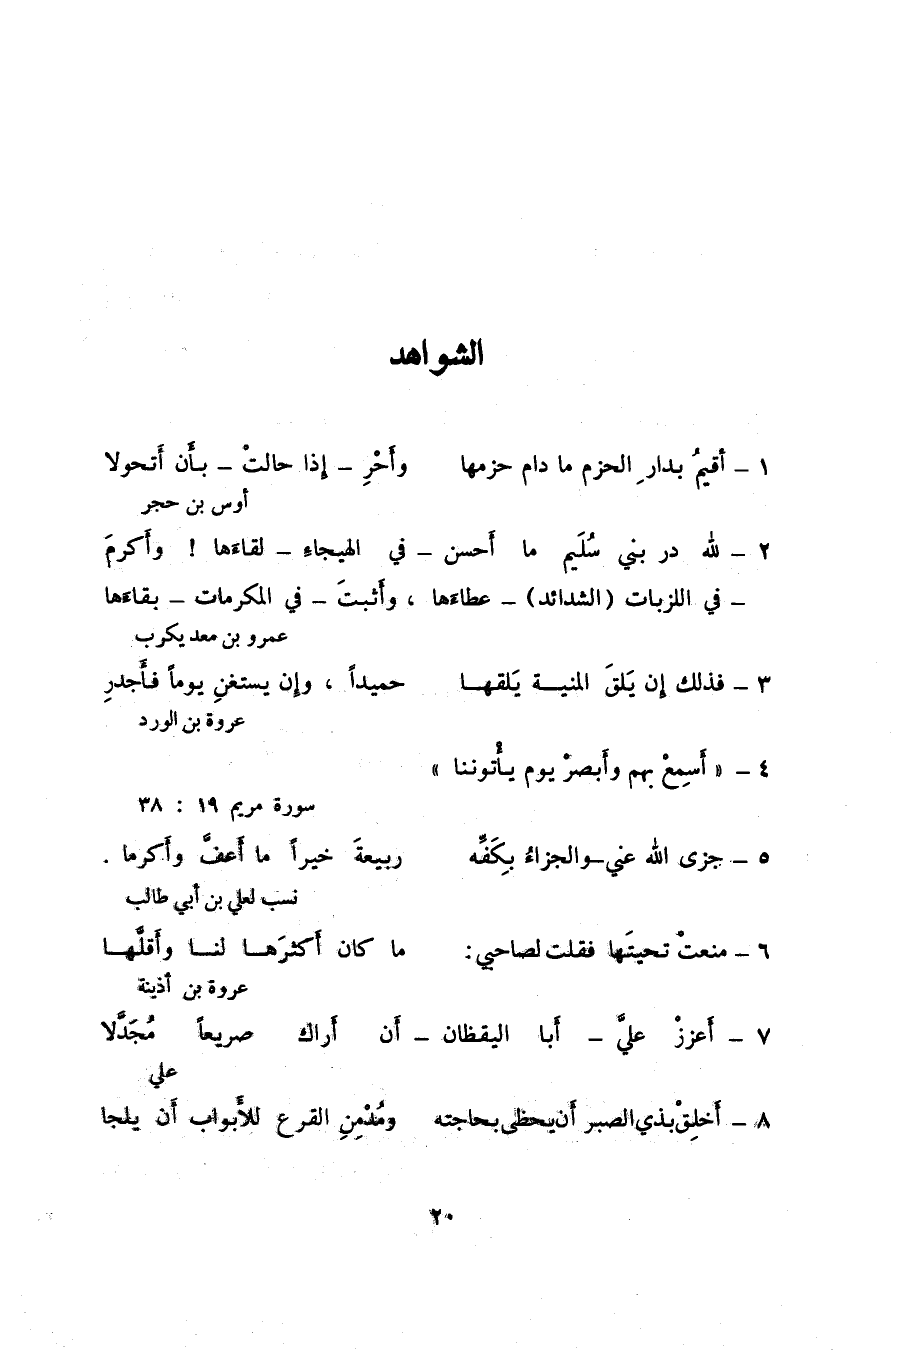 الشواهد
١ – أقيمُ بدارِ الحزم ما دام حزمها وأَحْرِ – إذا حالتْ – بأَن أَتحولا
أوس بن حجر
٢ – لله در بني سُلَيم ما أَحسن – في الهيجاءِ – لقاءَها ! وأَكرمَ
– في اللزبات (الشدائد) – عطاءَها ، وأَثبتَ – في المكرمات – بقاءَها
عمرو بن معد يكرب
٣ – فذلك إن يَلقَ المنيــة يَلقهــا حميداً ، وإن يستغنِ يوماً فأَجدرِ
عروة بن الورد
٤ – « أَسمِعْ بهم وأَبصرْ يوم يأْتوننا »
سورة مريم ١٩ : ٣٨
٥ – جزى الله عني–والجزاءُ بكَفِّه ربيعةَ خيراً ما أَعفَّ وأَكرما .
نسب لعلي بن أبي طالب
٦ – منعتْ تحيتَها فقلت لصاحبي: ما كان أَكثرَهــا لنــا وأَقلَّهــا
عروة بن أذينة
٧ – أَعززْ عليَّ – أَبا اليقظان – أَن أَراك صريعاً مُجَدَّلا
علي
٨ – أَخلِقْ بذي الصبر أَن يحظى بحاجته ومُدْمِنِ القرع للأَبواب أَن يلجا
٢٠